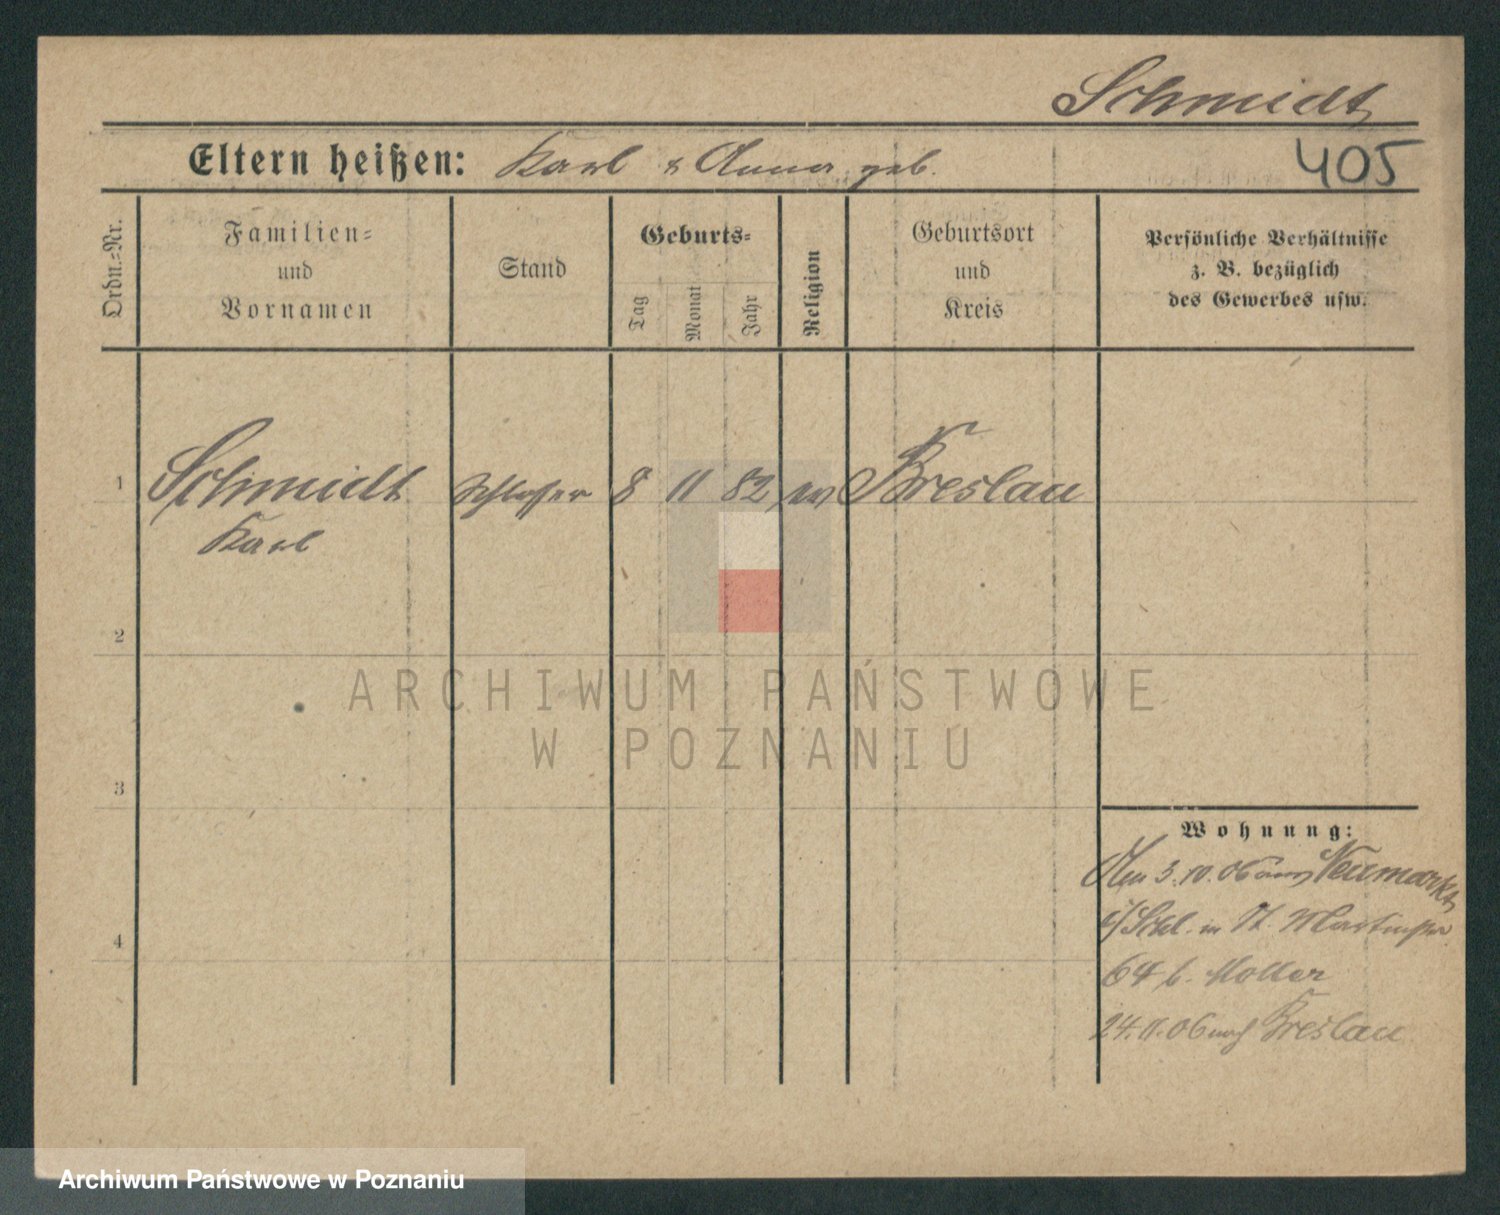 Schmidt
Eltern heißen: Karl & Anna geb.
405
Ordn.-Nr.
Familien-
und
Vornamen
Stand
Geburts-
Tag
Monat
Jahr
Religion
Geburtsort
und
Kreis
Persönliche Verhältnisse
z. B. bezüglich
des Gewerbes usw.
1 Schmidt Schlosser 8 11 82 ev Breslau
Karl
2
ARCHIWUM PAŃSTWOWE
W POZNANIU
3
Wohnung:
3.10.06 aus Neumarkt
i/Schl. in St. Martinstr
4
64 b. Moller
24.11.06 nach Breslau
Archiwum Państwowe w Poznaniu